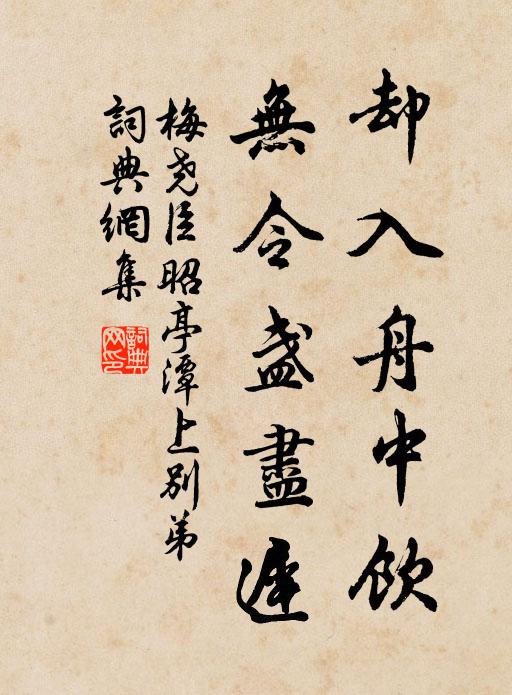 却入舟中飲
無令盞盡遲
梅尧臣昭亭潭上别弟
詞典網集
詞典网印